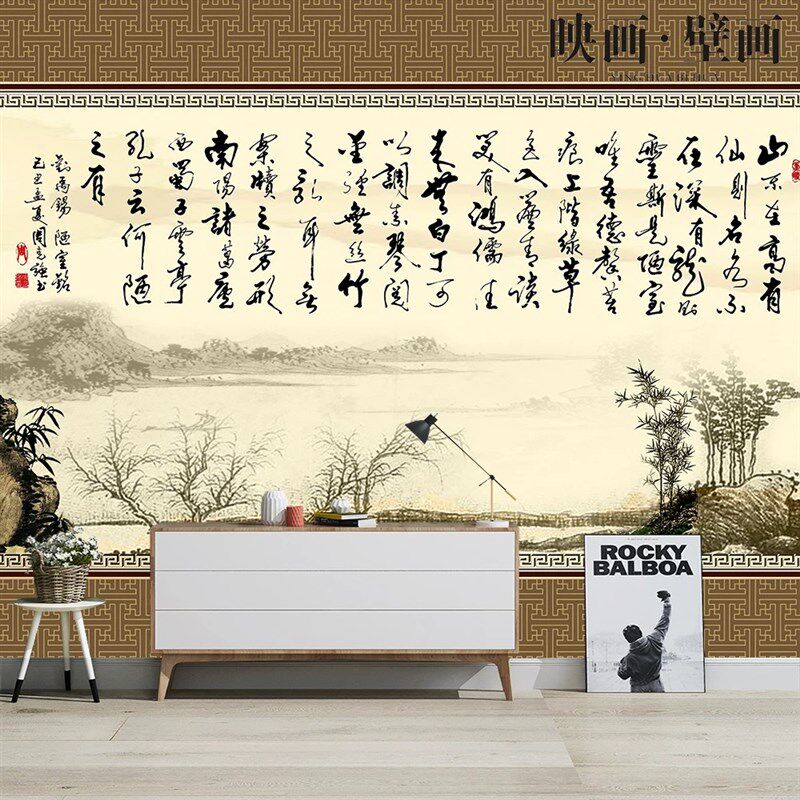 映画·壁画
山不在高有
仙則名水不
在深有龍則
靈斯是陋室
唯吾德馨苔
痕上階綠草
色入簾青談
笑有鴻儒往
來無白丁可
以調素琴閱
金經無絲竹
之亂耳無
案牘之勞形
南陽諸葛廬
西蜀子雲亭
孔子云何陋
之有
劉禹錫 陋室銘
ROCKY
BALBOA